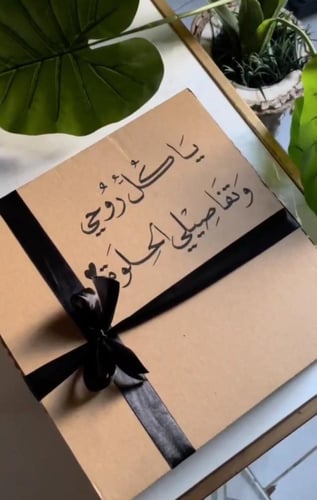 يَا كُلُّ رُوُحِي
وَتَفَاصِيْلِي الحِلوَة